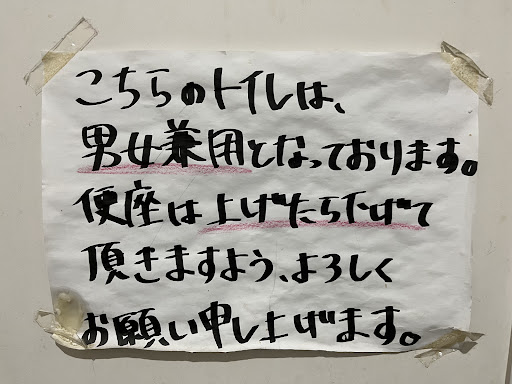 こちらのトイレは、
男女兼用となっております。
便座は上げたら下げて
頂きますよう、よろしく
お願い申し上げます。